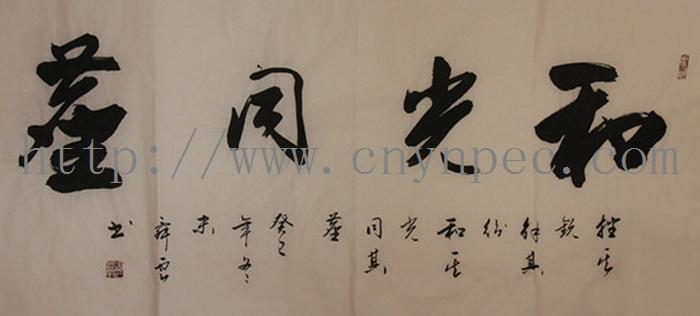 和光同塵
挫其
銳
解其
紛
和其
光
同其
塵
癸巳
年冬
书
http://www.cnynpec.com